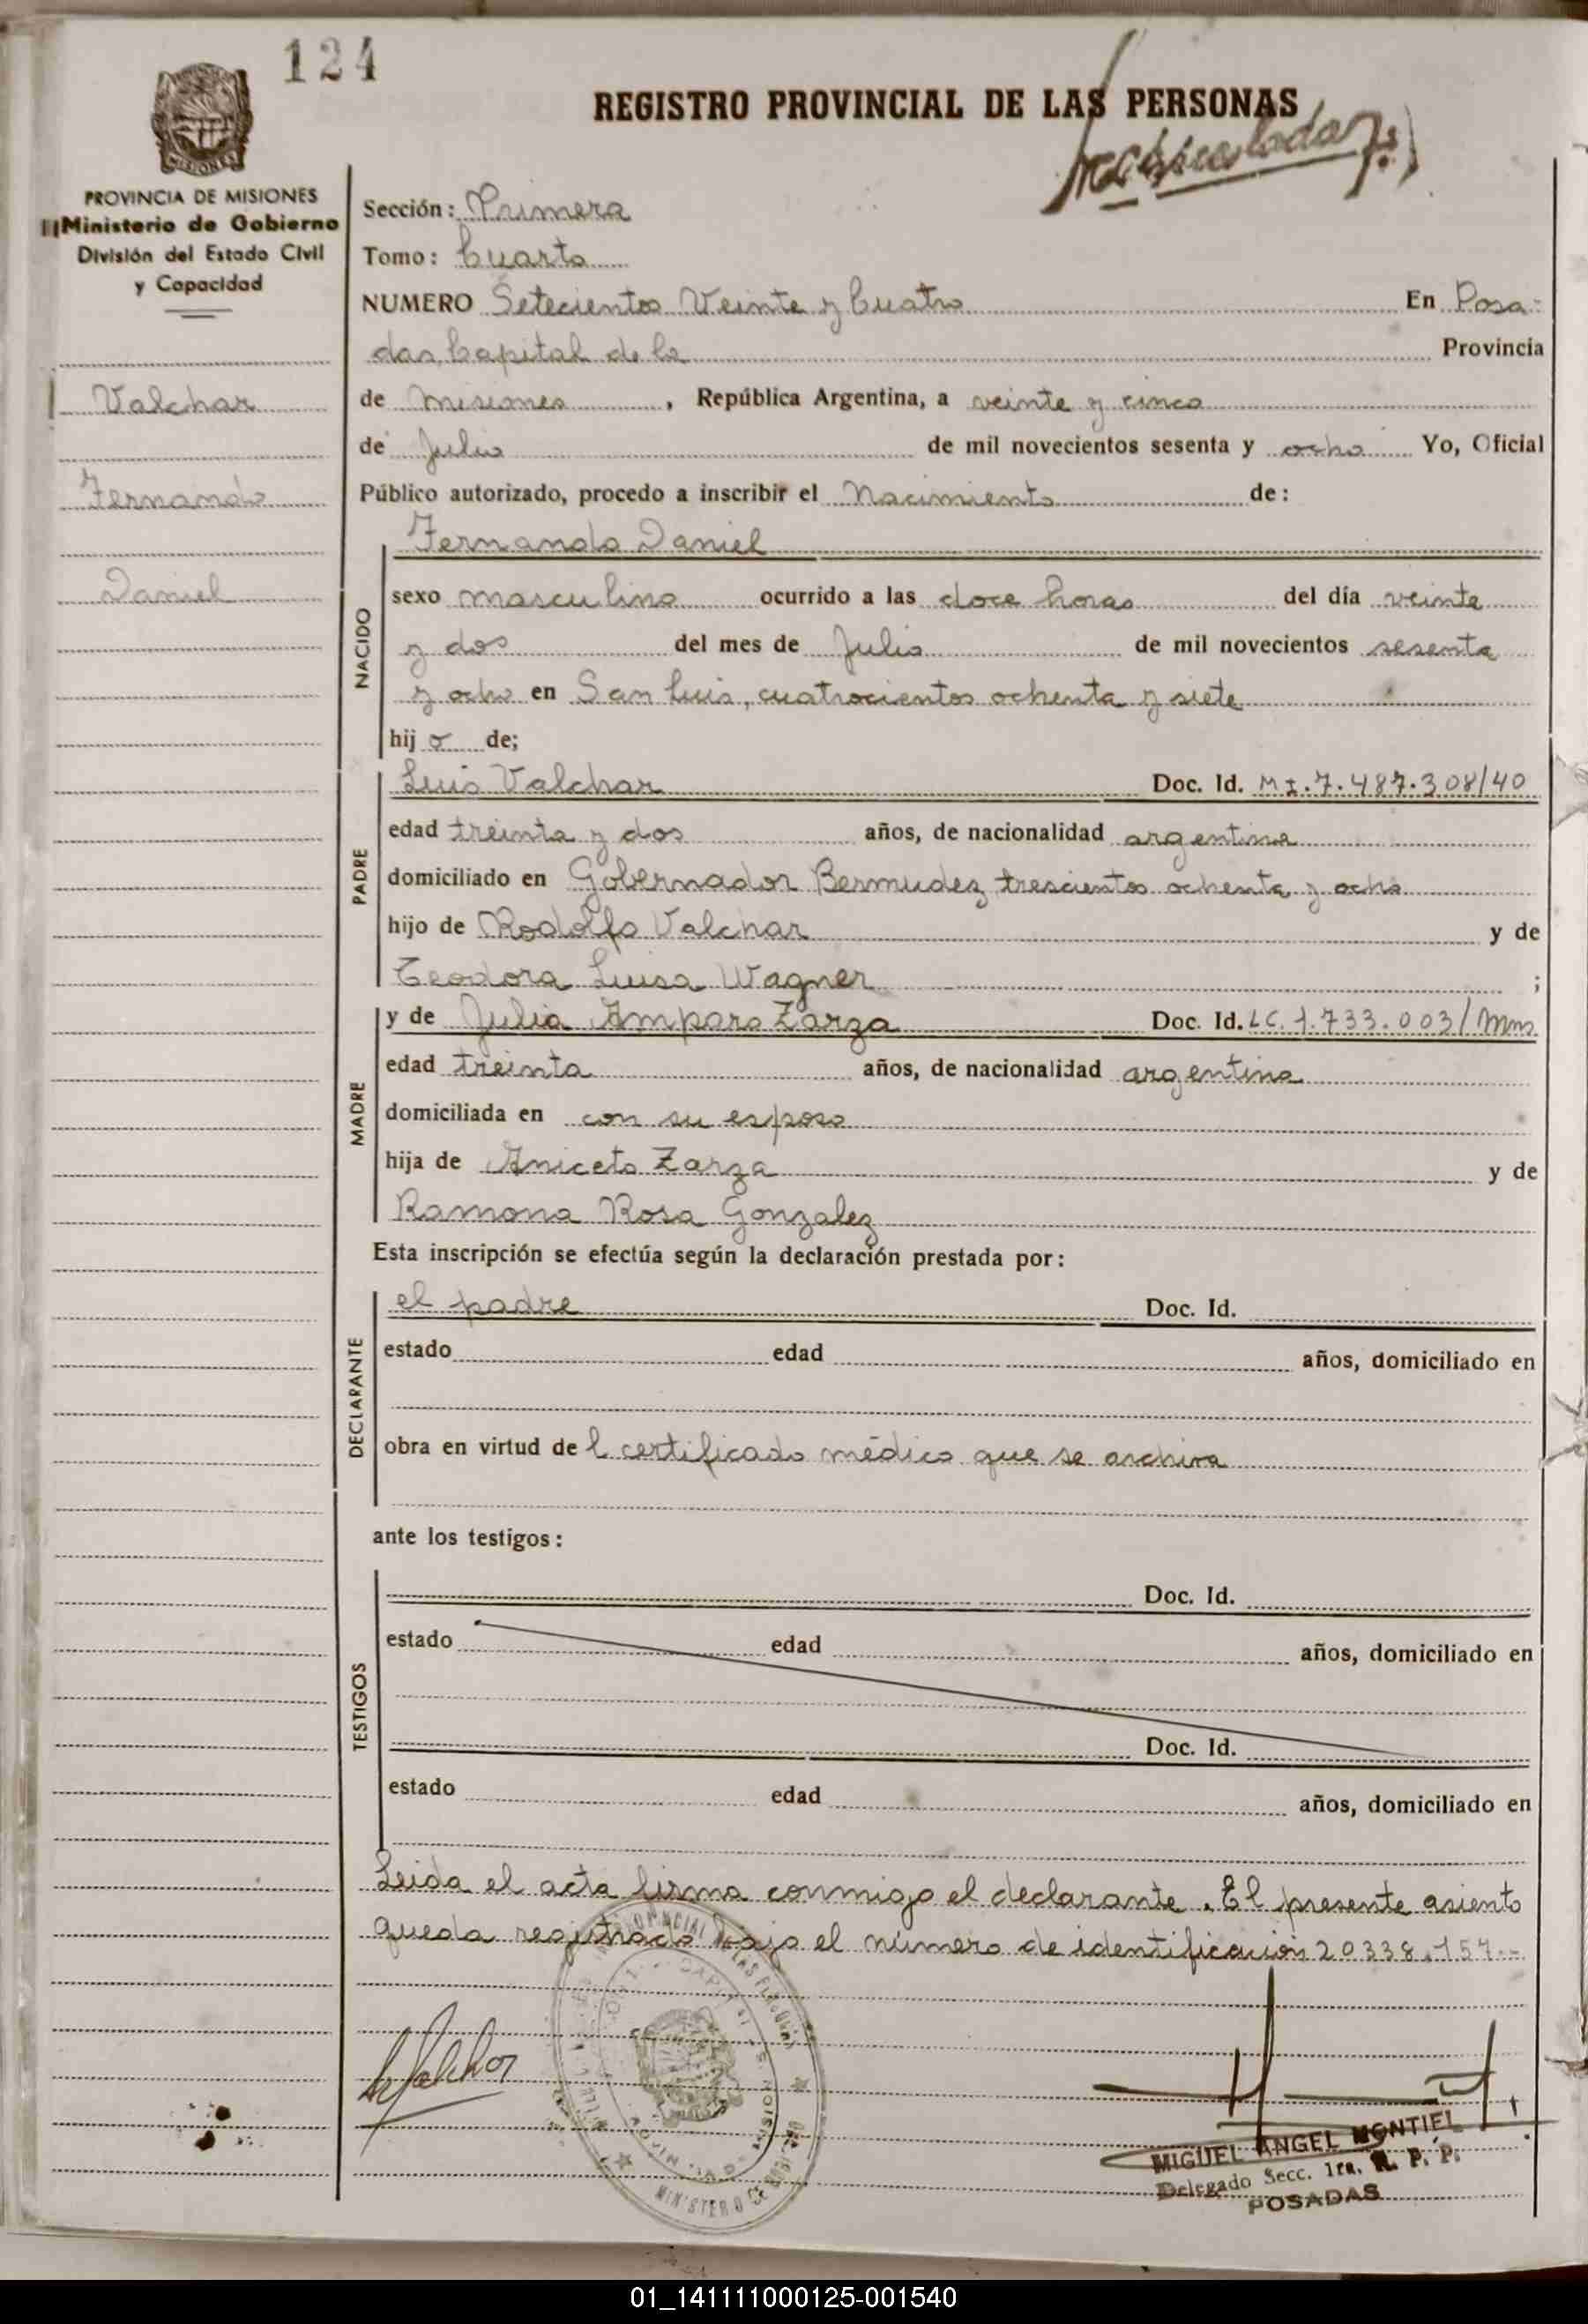 124
REGISTRO PROVINCIAL DE LAS PERSONAS
MISIONES
PROVINCIA DE MISIONES
Ministerio de Gobierno
División del Estado Civil
y Capacidad
Valchar
Fernando
Daniel
Sección: Primera
Tomo: Cuarto
NUMERO Setecientos Veinte y Cuatro En Posa-
das, Capital de la Provincia
de Misiones, República Argentina, a veinte y cinco
de Julio de mil novecientos sesenta y ocho Yo, Oficial
Público autorizado, procedo a inscribir el Nacimiento de:
NACIDO
Fernando Daniel
sexo masculino ocurrido a las doce horas del día veinte
y dos del mes de Julio de mil novecientos sesenta
y ocho en San Luis, cuatrocientos ochenta y siete
hijo de;
PADRE
Luis Valchar Doc. Id. MI.7.487.308/40
edad treinta y dos años, de nacionalidad argentina
domiciliado en Gobernador Bermudez trescientos ochenta y ocho
hijo de Rodolfo Valchar y de
Teodora Luisa Wagner ;
MADRE
y de Julia Amparo Zarza Doc. Id. LC.1.733.003/Mns
edad treinta años, de nacionalidad argentina
domiciliada en con su esposo
hija de Aniceto Zarza y de
Ramona Rosa Gonzalez
Esta inscripción se efectúa según la declaración prestada por:
DECLARANTE
el padre Doc. Id.
estado edad años, domiciliado en
obra en virtud de l certificado médico que se archiva
ante los testigos:
TESTIGOS
Doc. Id.
estado edad años, domiciliado en
Doc. Id.
estado edad años, domiciliado en
Leida el acta firma conmigo el declarante. El presente asiento
queda registrado bajo el número de identificación 20338.157.-
MIGUEL ANGEL MONTIEL
Delegado Secc. 1ra. R. P. P.
POSADAS
01_141111000125-001540